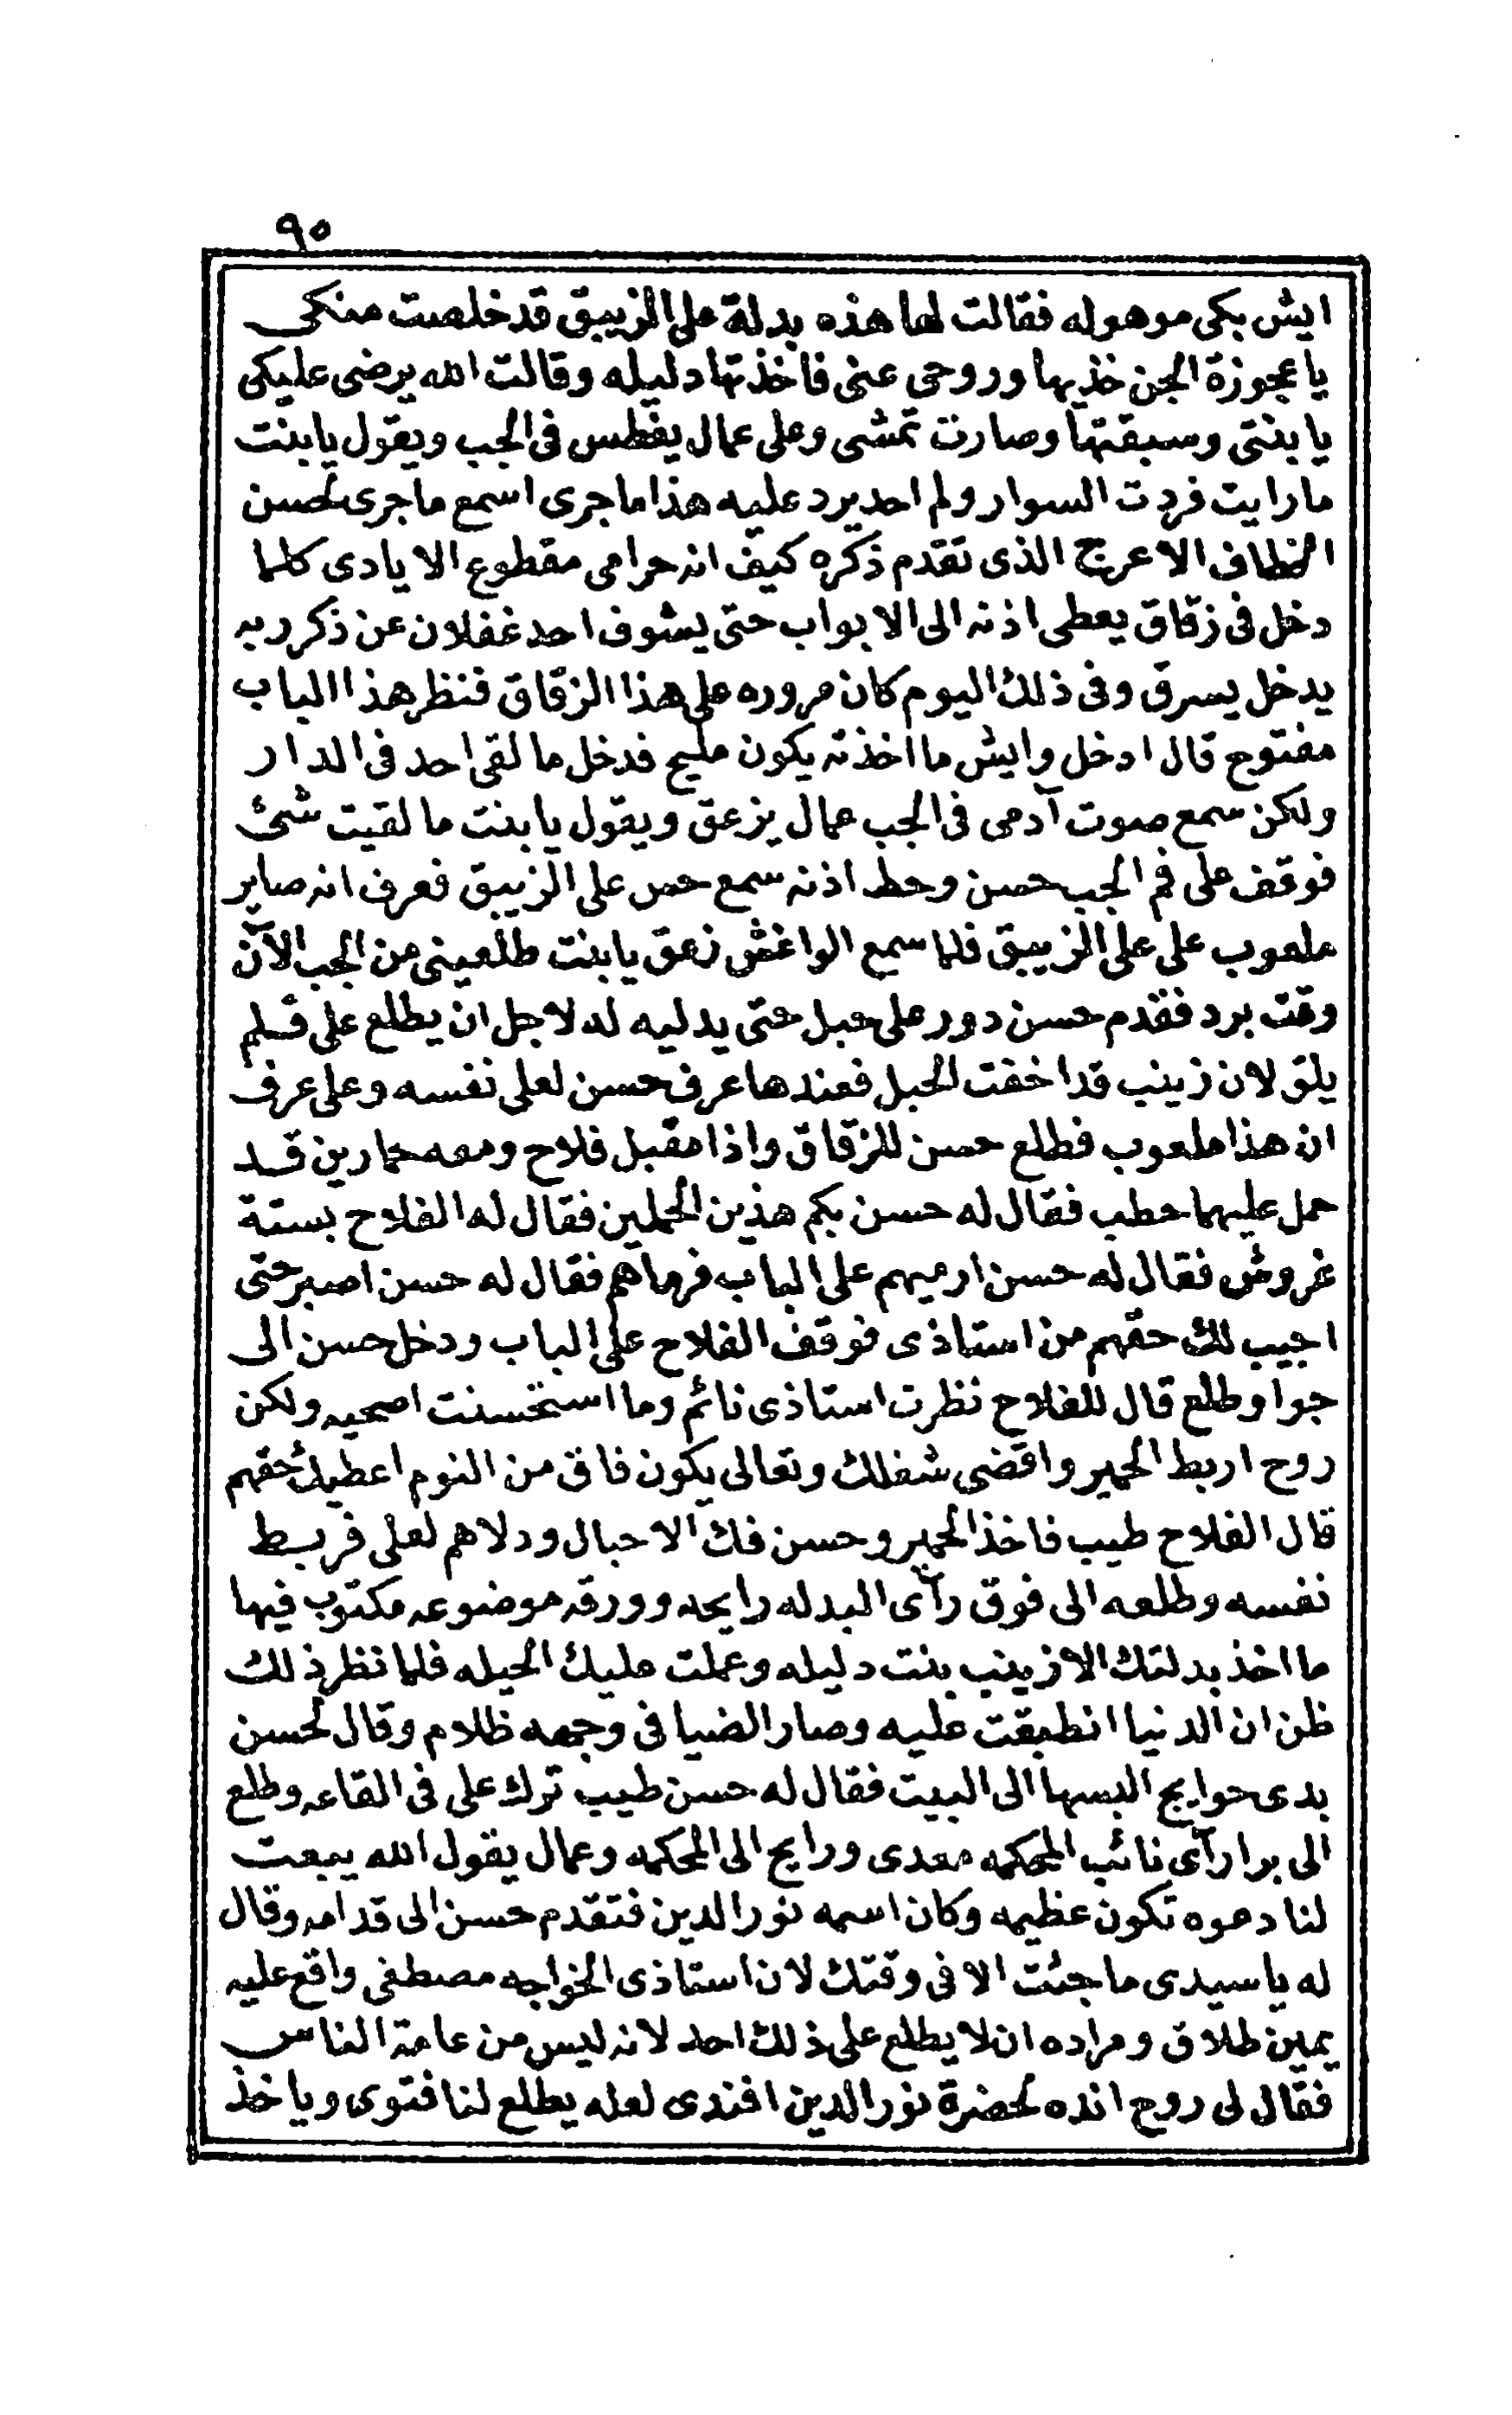 ٩٥
ايش بكى موهوله فقالت لها هذه بدلة على الزيبق قد خلصت منكى
يا عجوزة الجن خذيها وروحى عنى فاخذتها دليله وقالت الله يرضى عليكى
يا بنتى وسبقتها وصارت تمشى وعلى عمال يغطس فى الجب ويقول يا بنت
ما رايت فردت السوار ولم احد يرد عليه هذا ما جرى اسمع ما جرى لحسن
الخطاف الاعرج الذى تقدم ذكره كيف انه حرامى مقطوع الايادى كلما
دخل فى زقاق يعطى اذنه الى الابواب حتى يشوف احد غفلان عن ذكر ربه
يدخل يسرق وفى ذلك اليوم كان مروره على هذا الزقاق فنظر هذا الباب
مفتوح قال ادخل وايش ما اخذته يكون مليح فدخل ما لقى احد فى الدار
ولكن سمع صوت آدمى فى الجب عمال يزعق ويقول يا بنت ما لقيت شئ
فوقف على فم الجب حسن وحط اذنه سمع حس على الزيبق فعرف انه صاير
ملعوب على على الزيبق فلما سمع الواغش زعق يا بنت طلعينى من الجب الآن
وقت برد فقدم حسن دور على حبل حتى يدليه له لاجل ان يطلع على فلم
يلق لان زينب قد اخفت الحبل فعندها عرف حسن لعلى نفسه وعلى عرف
ان هذا ملعوب فطلع حسن للزقاق واذا مقبل فلاح ومعه حمارين قد
حمل عليهما حطب فقال له حسن بكم هذين الحملين فقال له الفلاح بستة
غروش فقال له حسن ارميهم على الباب فرماهم فقال له حسن اصبر حتى
اجيب لك حقهم من استاذى فوقف الفلاح على الباب ودخل حسن الى
جوا وطلع قال للفلاح نظرت استاذى نائم وما استحسنت اصحيه ولكن
روح اربط الحمير واقضى شغلك وتعالى يكون فاق من النوم اعطيك حقهم
قال الفلاح طيب فاخذ الحمير وحسن فك الاحبال ودلاهم لعلى فربط
نفسه وطلعه الى فوق رآى البدله رايحه وورقه موضوعه مكتوب فيها
ما اخذ بدلتك الا زينب بنت دليله وعملت عليك الحيله فلما نظر ذلك
ظن ان الدنيا انطبقت عليه وصار الضيا فى وجهه ظلام وقال لحسن
بدى حوايج البسها الى البيت فقال له حسن طيب ترك على فى القاعه وطلع
الى برا رآى نائب المحكمه معدى ورايح الى المحكمه وعمال يقول الله يبعت
لنا دعوه تكون عظيمه وكان اسمه نور الدين فتقدم حسن الى قدامه وقال
له يا سيدى ما جئت الا فى وقتك لان استاذى الخواجه مصطفى واقع عليه
يمين طلاق ومراده ان لا يطلع على ذلك احد لانه ليس من عامة الناس
فقال لى روح انده لحضرة نور الدين افندى لعله يطلع لنا فتوى وياخذ